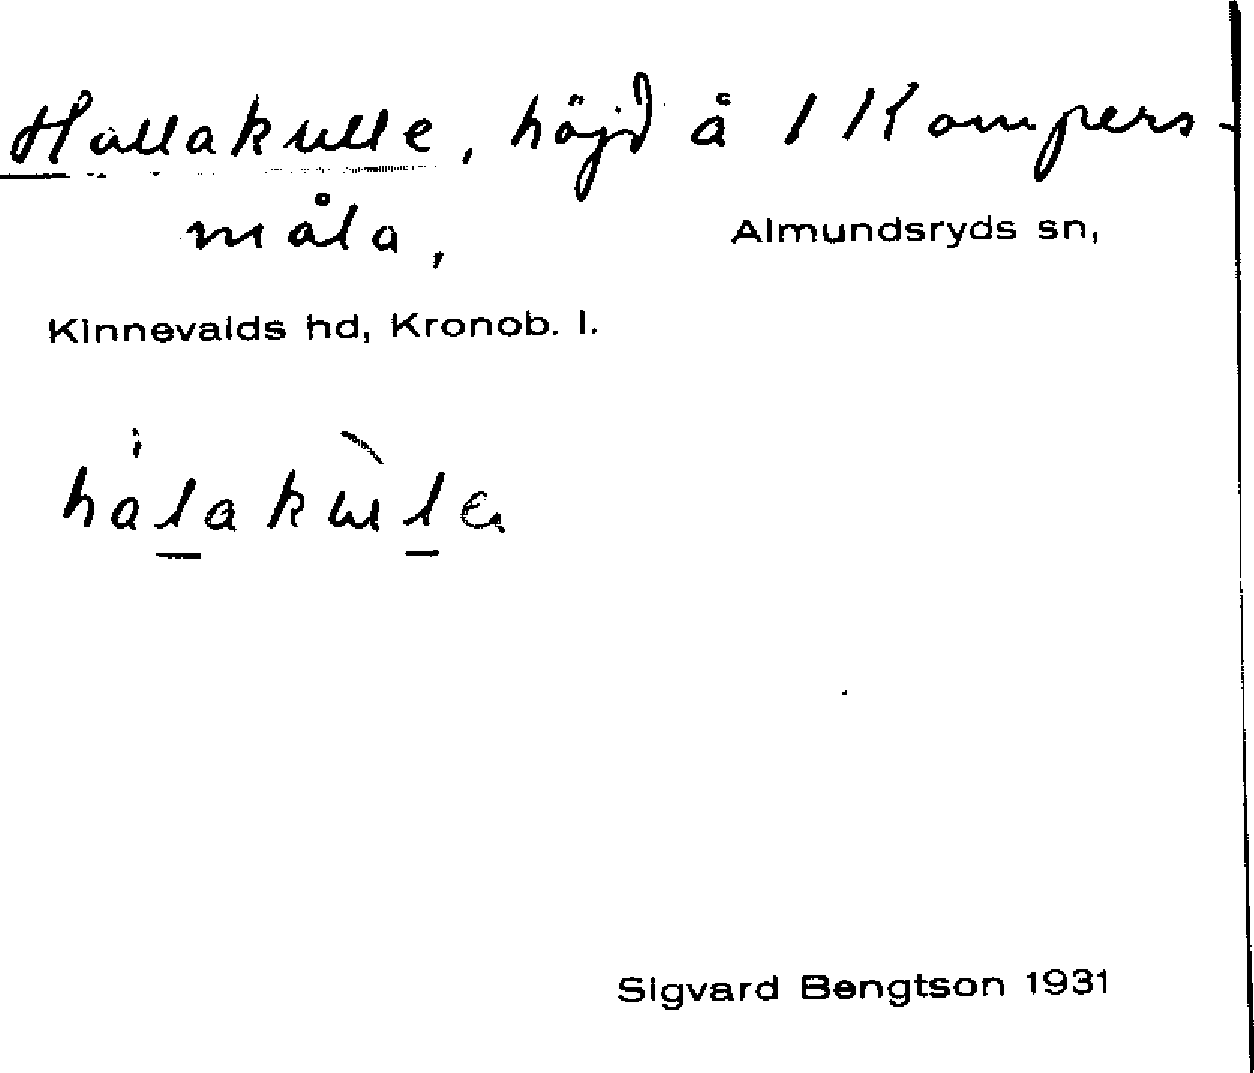 Hallakulle, höjd å 1 Kompers-
måla, Almundsryds sn,
Kinnevalds hd, Kronob. l.
Sigvard Bengtson 1931